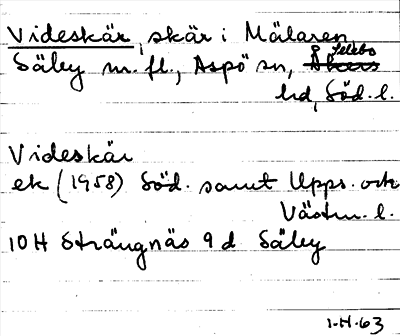 Videskär, skär i Mälaren,
Säby m. fl., Aspö sn, Selebo
hd, Söd. l.
Videskär
ek (1958) Söd. samt Upps. och
Västm. l.
10H Strängnäs 9d Säby
1-H-63